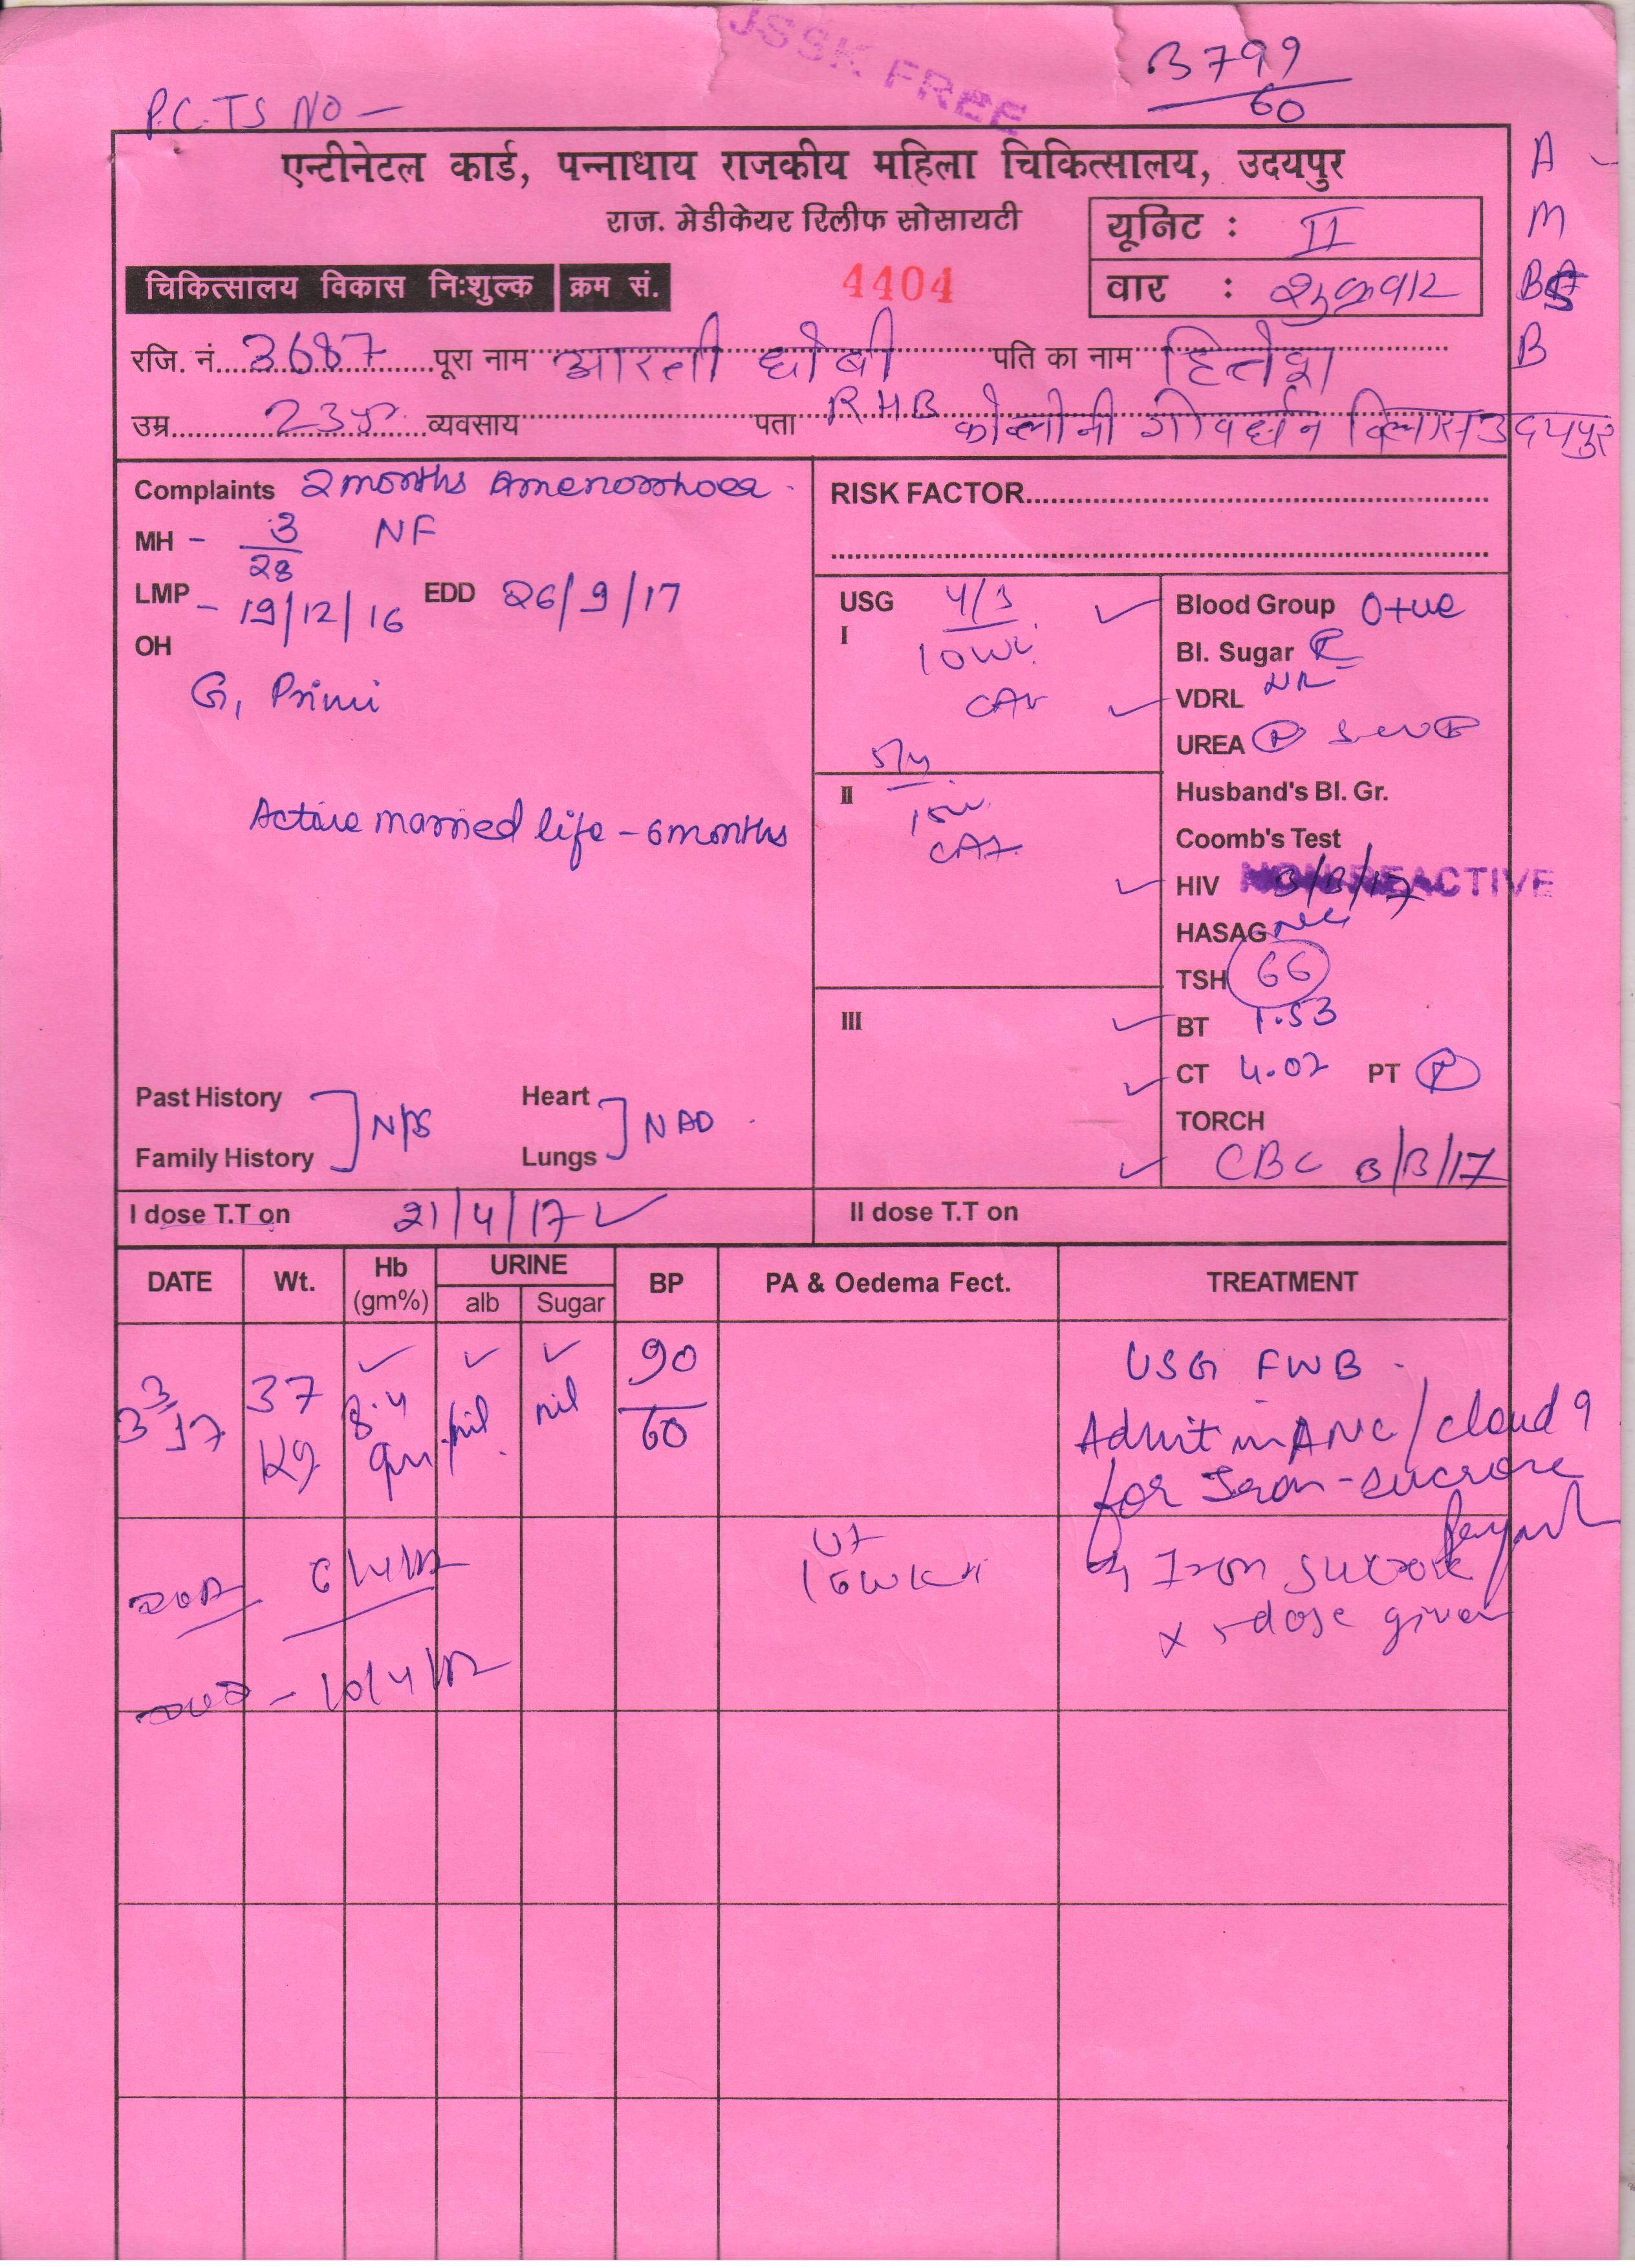 JSSK FREE
3799
60
P.C.TS NO -
एन्टीनेटल कार्ड, पन्नाधाय राजकीय महिला चिकित्सालय, उदयपुर
A -
राज. मेडीकेयर रिलीफ सोसायटी
यूनिट : II
M
चिकित्सालय विकास निःशुल्क क्रम सं. 4404
वार : शुक्रवार
B
रजि. नं. 3687 पूरा नाम आरती धोबी पति का नाम हितेश
B
उम्र 23 व्यवसाय पता RHB कोलोनी गोवर्धन विलास उदयपुर
Complaints 2 months Amenorrhoea
RISK FACTOR
MH - 3/28 NF
LMP - 19/12/16 EDD 26/9/17
OH
G, Primi
Active married life - 6 months
Past History
Family History
N/S
Heart
Lungs
NAD
USG 4/3
I
10wk
5/4
II
III
Blood Group O+ve
Bl. Sugar
VDRL NR
UREA
Husband's Bl. Gr.
Coomb's Test
HIV NON REACTIVE 3/3/17
HASAG
TSH 66
BT 1.53
CT 4.02 PT
TORCH
CBC 3/3/17
I dose T.T on 21/4/17
II dose T.T on
DATE Wt. Hb (gm%) URINE alb Sugar BP PA & Oedema Fect. TREATMENT
3/3/17 37 Kg 8.4 gm nil nil 90/60
USG FWB
Admit in ANC / cloud 9
for Iron-sucrose
16 wk
Iron sucrose
x 5 dose given